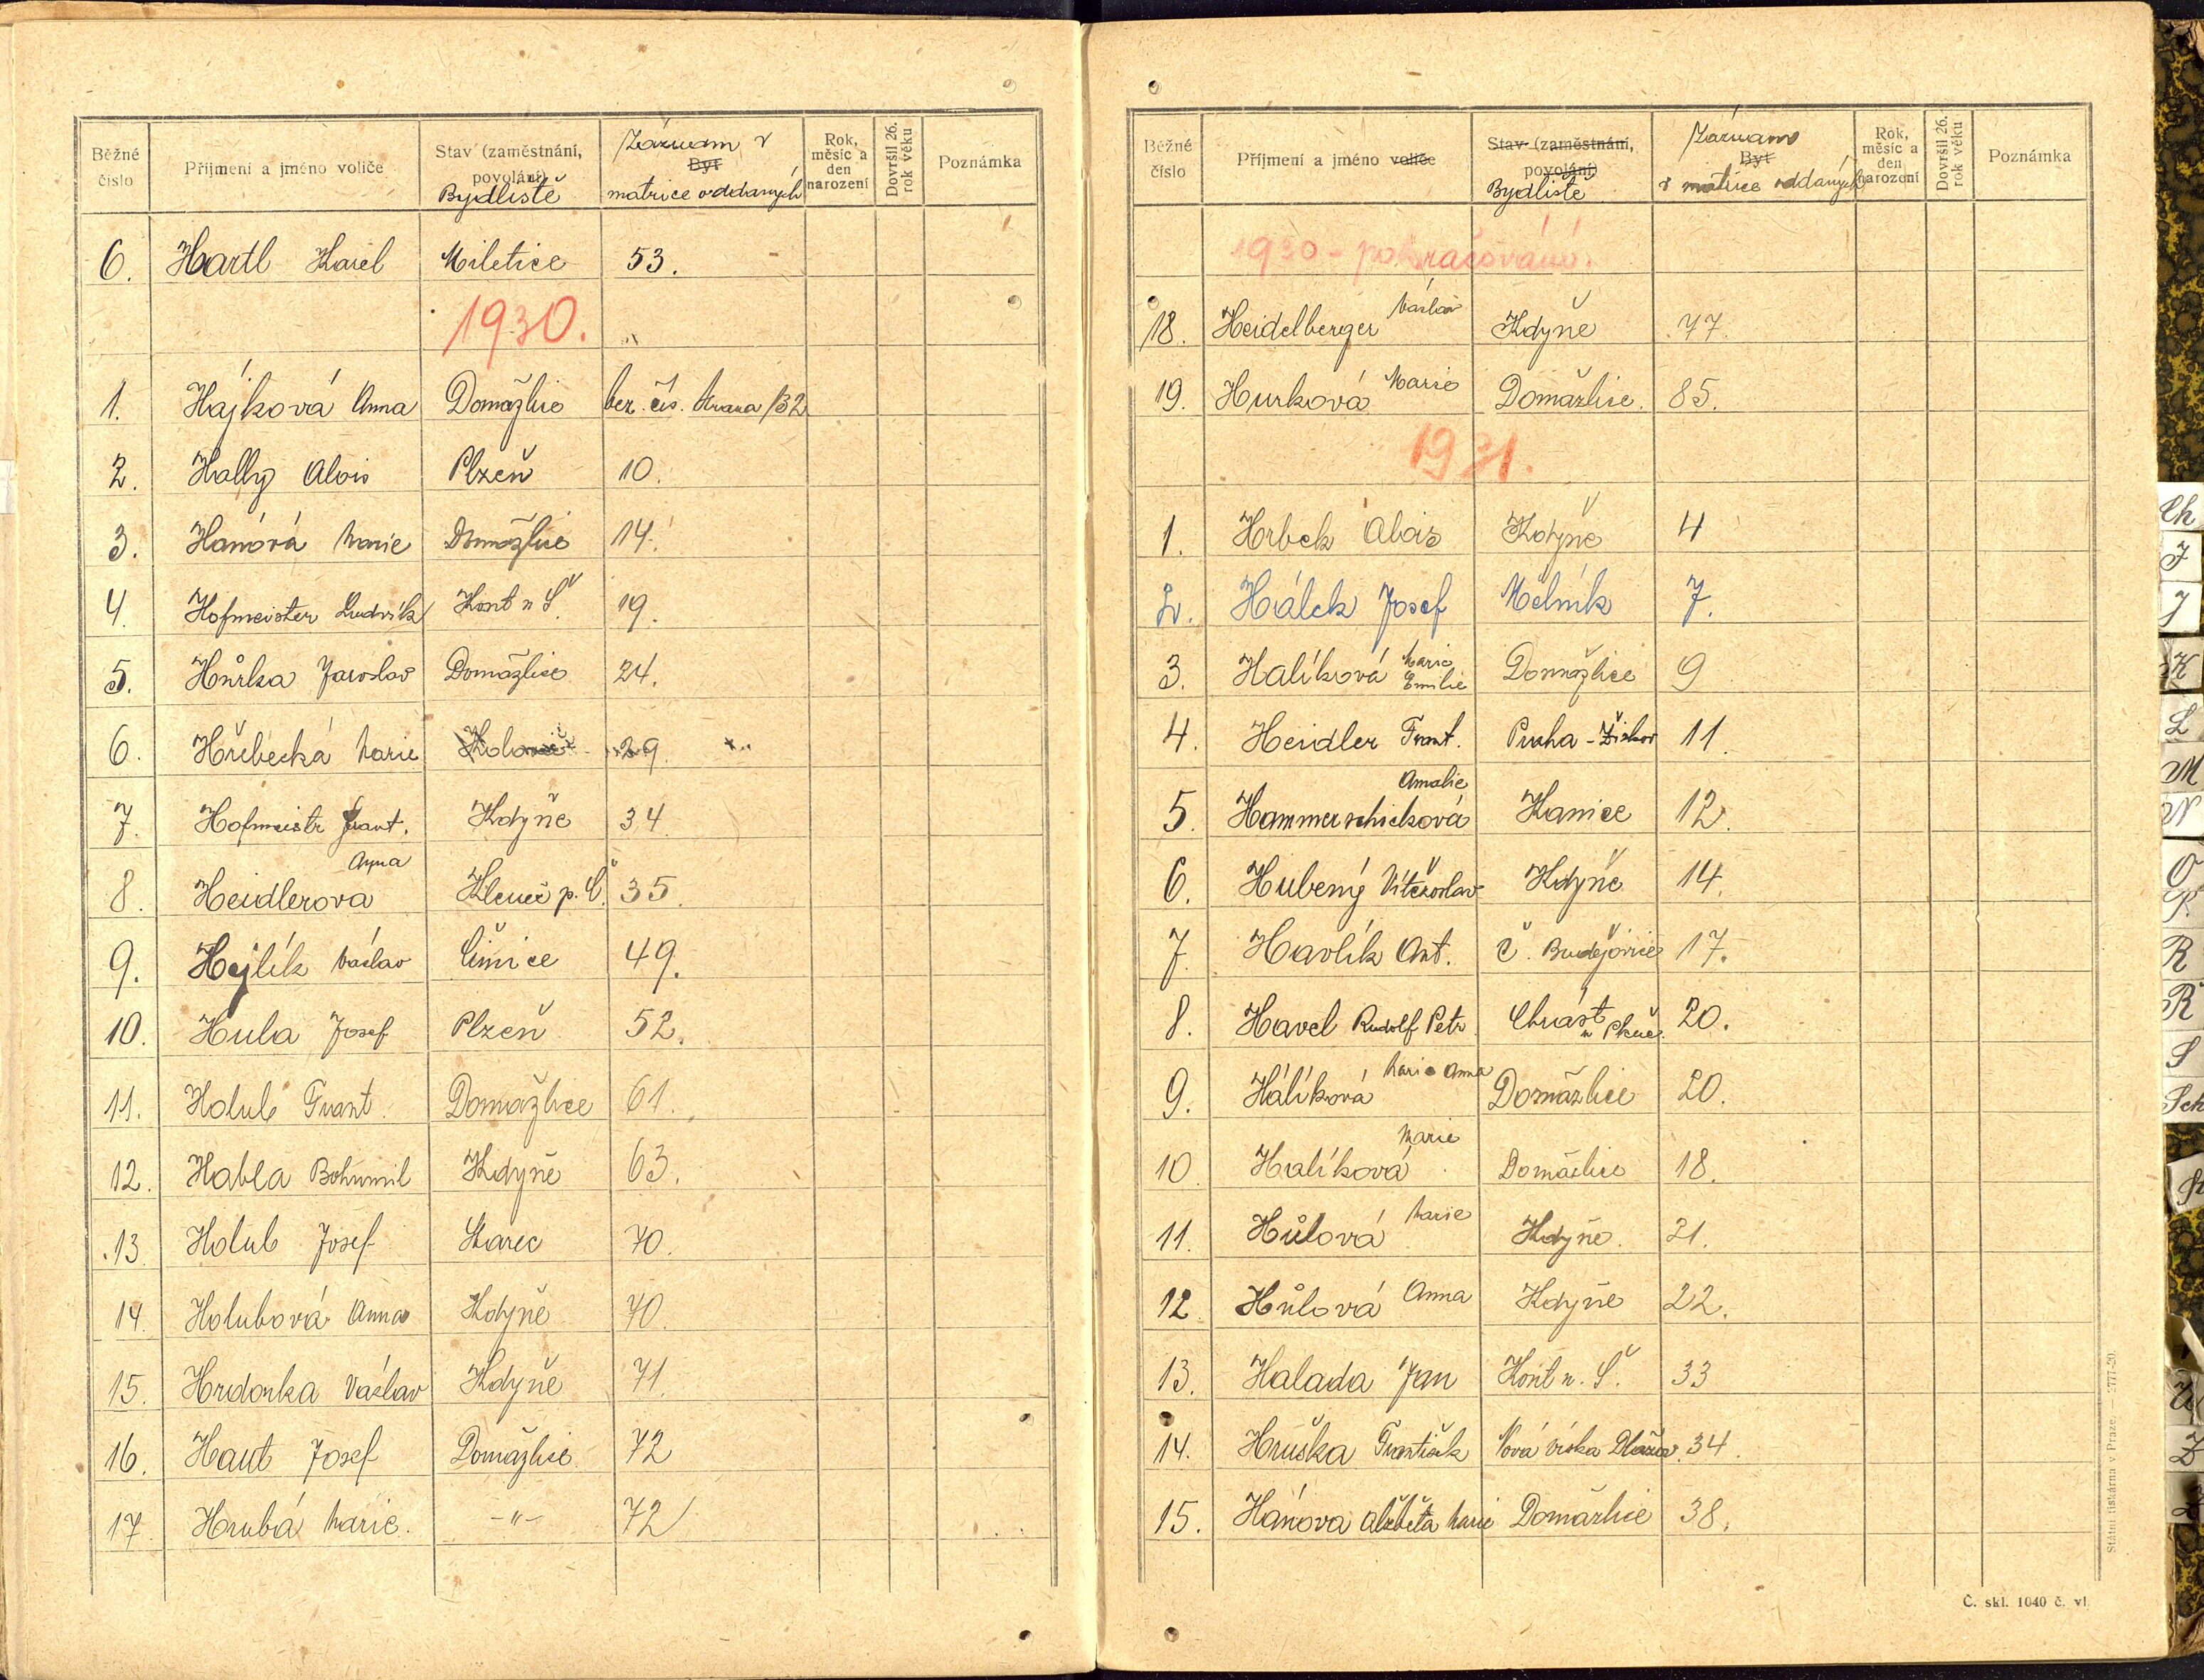 Běžné číslo | Příjmení a jméno voliče | Stav (zaměstnání, povolání) Bydliště | Záznam v Byt matrice oddaných | Rok, měsíc a den narození | Dovršil 26. rok věku | Poznámka
6. Hartl Karel Miletice 53.
1930.
1. Hájková Anna Domažlice bez. čís. strana 132
2. Hally Alois Plzeň 10.
3. Hanová Marie Domažlice 14.
4. Hofmeister Ludvík Kout n Š. 19.
5. Hůrka Jaroslav Domažlice 24.
6. Hřebecká Marie 29.
7. Hofmeistr Frant. Kdyně 34
8. Heidlerova Anna Klenčí p. Č. 35.
9. Hejlík Václav 49.
10. Hula Josef Plzeň 52.
11. Holub Frant. Domažlice 61.
12. Habla Bohumil Kdyně 63.
13 Holub Josef Starec 70.
14. Holubová Anna Kdyně 70.
15. Hrdonka Václav Kdyně 71.
16. Haut Josef Domažlice 72
17 Hrubá Marie. -"- 72
Běžné číslo | Příjmení a jméno voliče | Stav (zaměstnání, povolání) Bydliště | Záznam Byt v matrice oddaných | Rok, měsíc a den narození | Dovršil 26. rok věku | Poznámka
1930 - pokračování.
18. Heidelberger Václav Kdyně 77.
19. Hurková Marie Domažlice. 85.
1931.
1. Hrbek Alois Kdyně 4
2. Hálek Josef Mělník 7.
3. Halíková Marie Emilie Domažlice 9
4. Heidler Frant. Praha - Žižkov 11.
5. Hammerschicková Amalie Kanice 12.
6. Hubený Vítězoslav Kdyně 14.
7. Havlík Ant. Č. Budějovice 17.
8. Havel Rudolf Petr Chrást u 20.
9. Hálíková Marie Anna Domažlice 20.
10. Halíková Marie Domažlice 18.
11. Hůlová Marie Kdyně. 21.
12 Hůlová Anna Kdyně 22.
13. Halada Jan Kout n. Š. 33
14. Hruška František Nová Víska 34.
15. Hánova Alžběta Marie Domažlice 38.
Státní tiskárna v Praze. — 3777-20.
Č. skl. 1040 č. vl.
Ch
I
J
K
L
M
N
O
P
R
Ř
S
Sch
St
U
Z
Ž